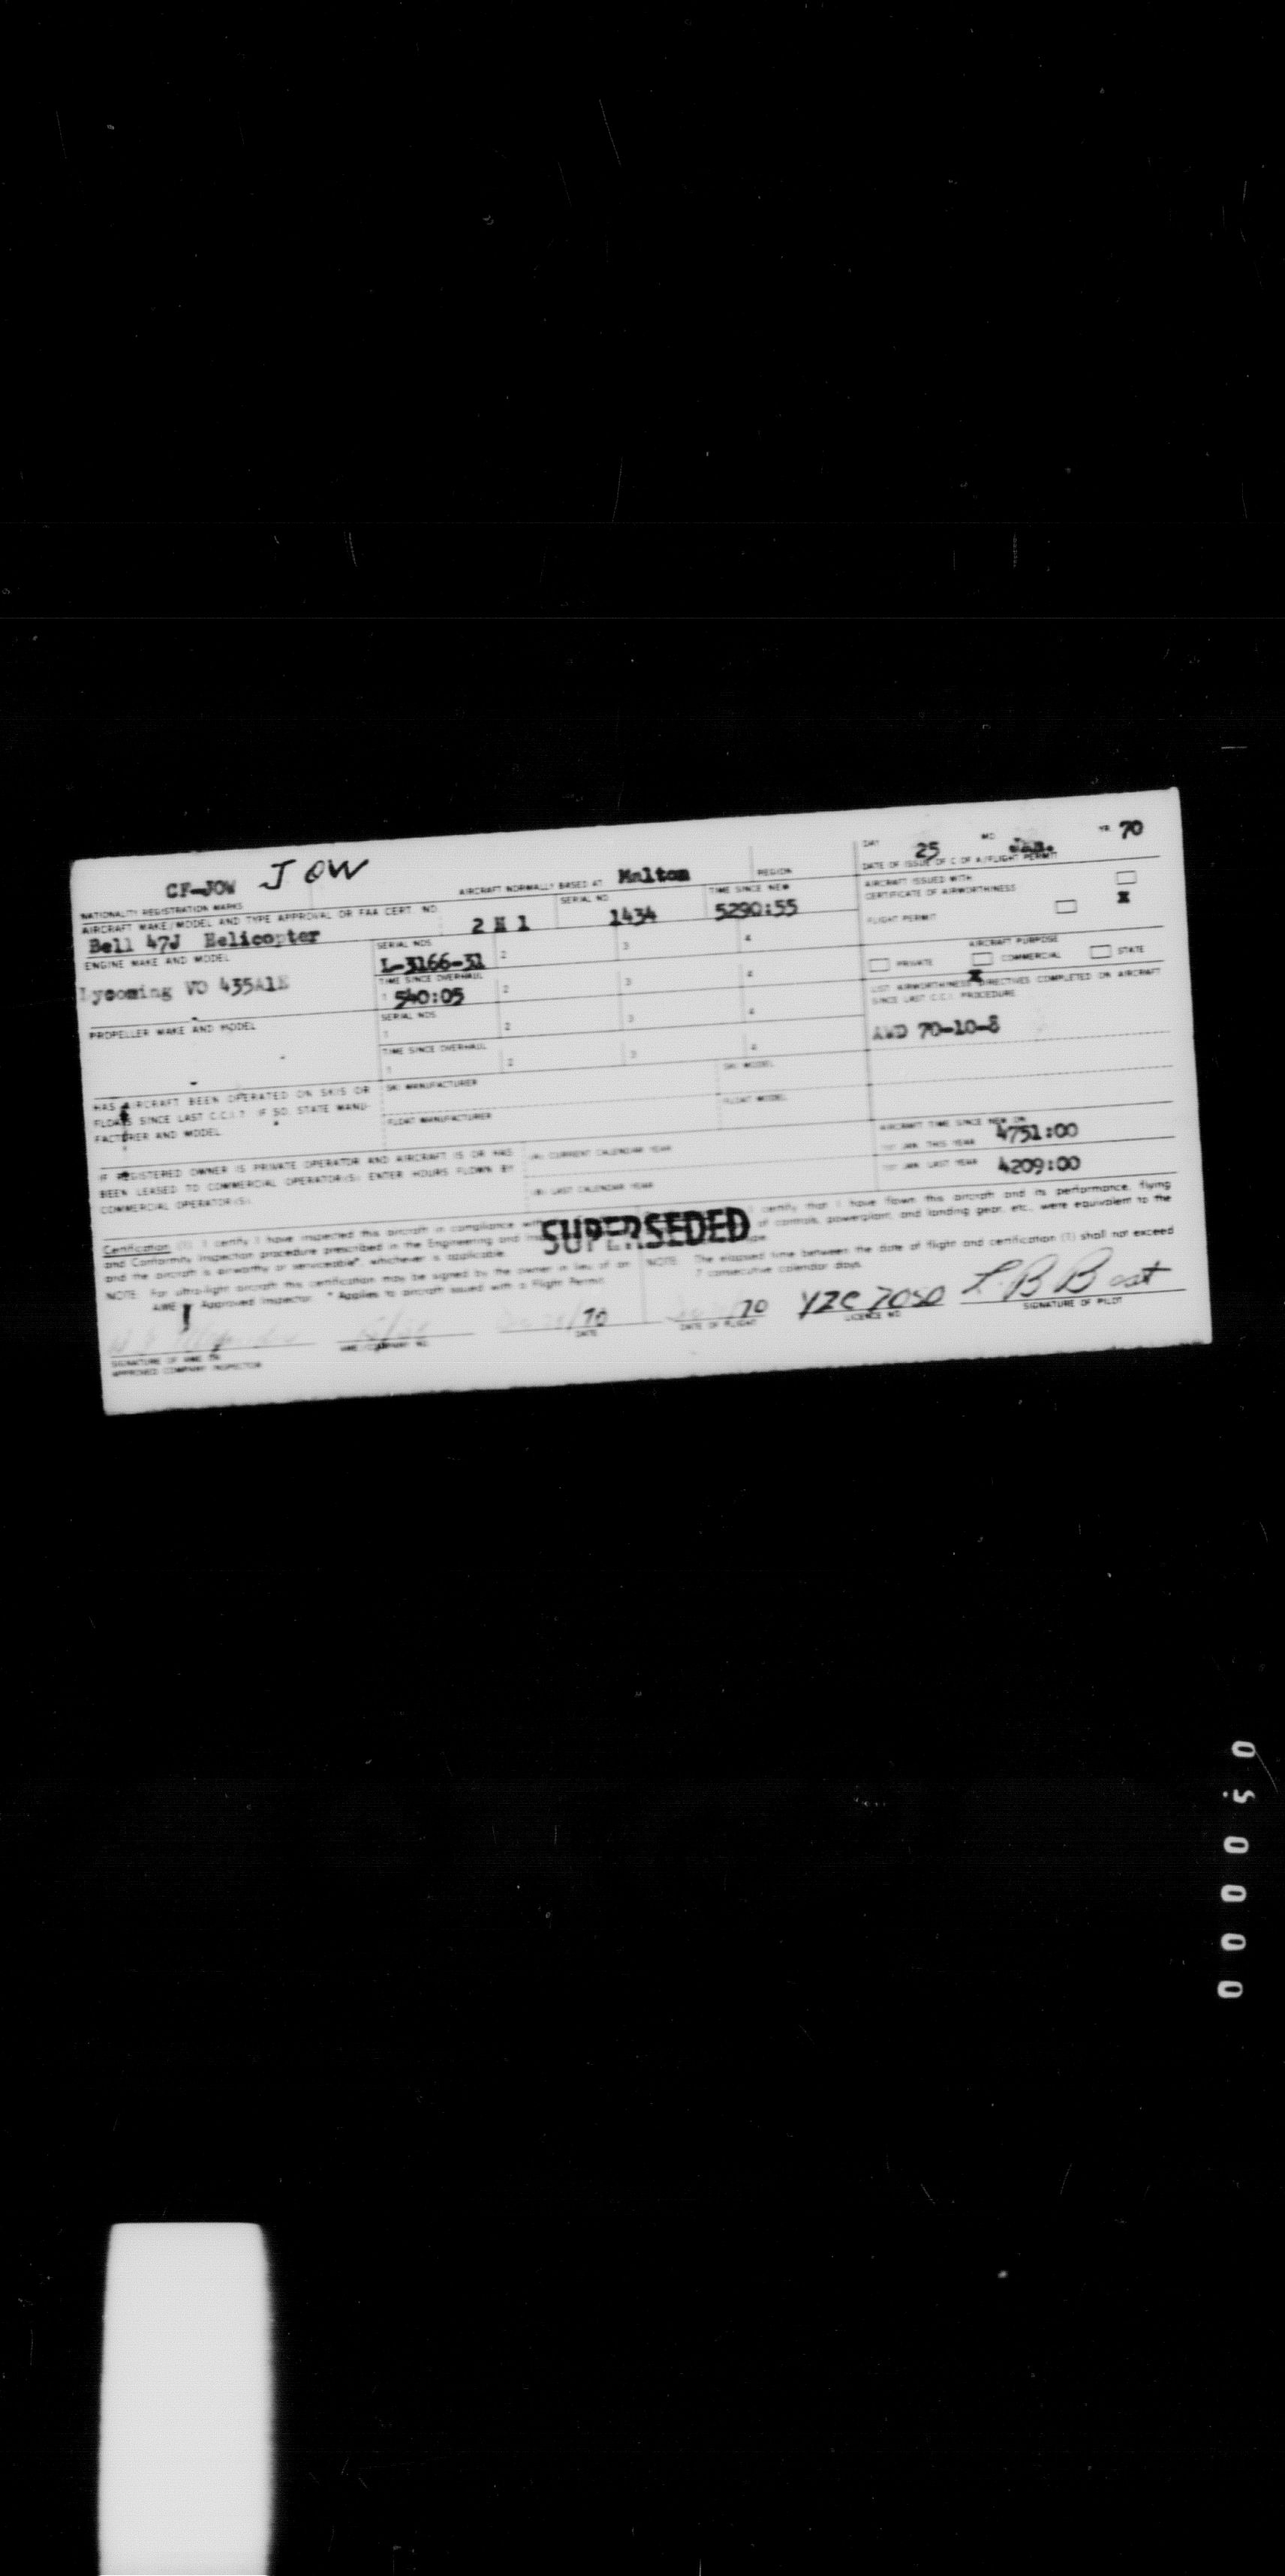 CF-JOW JOW
NATIONALITY REGISTRATION MARKS
AIRCRAFT NORMALLY BASED AT Malton
REGION
DAY 25 MO Jan. YR 70
DATE OF ISSUE OF C OF A/FLIGHT PERMIT
AIRCRAFT MAKE/MODEL AND TYPE APPROVAL OR FAA CERT. NO.
Bell 47J Helicopter 2 H 1
SERIAL NO. 1434
TIME SINCE NEW 5290:55
AIRCRAFT ISSUED WITH
CERTIFICATE OF AIRWORTHINESS X
FLIGHT PERMIT
ENGINE MAKE AND MODEL
Lycoming VO 435A1E
SERIAL NOS.
L-3166-31 2 3 4
TIME SINCE OVERHAUL
1 540:05 2 3 4
AIRCRAFT PURPOSE
PRIVATE COMMERCIAL STATE
X
LIST AIRWORTHINESS DIRECTIVES COMPLETED ON AIRCRAFT
SINCE LAST C.C.I. PROCEDURE
AWD 70-10-8
PROPELLER MAKE AND MODEL
SERIAL NOS.
1 2 3 4
TIME SINCE OVERHAUL
1 2 3 4
HAS AIRCRAFT BEEN OPERATED ON SKIS OR
FLOATS SINCE LAST C.C.I.? IF SO, STATE MANU-
FACTURER AND MODEL
SKI MANUFACTURER
SKI MODEL
FLOAT MANUFACTURER
FLOAT MODEL
AIRCRAFT TIME SINCE NEW ON
1ST JAN. THIS YEAR 4751:00
1ST JAN. LAST YEAR 4209:00
IF REGISTERED OWNER IS PRIVATE OPERATOR AND AIRCRAFT IS OR HAS
BEEN LEASED TO COMMERCIAL OPERATOR(S), ENTER HOURS FLOWN BY
COMMERCIAL OPERATOR(S).
(A) CURRENT CALENDAR YEAR
(B) LAST CALENDAR YEAR
SUPERSEDED
Certification (1) I certify I have inspected this aircraft in compliance with
and Conformity Inspection procedure prescribed in the Engineering and
and the aircraft is airworthy or serviceable*, whichever is applicable.
NOTE: For ultra-light aircraft this certification may be signed by the owner in lieu of an
AME or Approved Inspector. * Applies to aircraft issued with a Flight Permit.
I certify that I have flown this aircraft and its performance, flying
of controls, powerplant, and landing gear, etc., were equivalent to the
NOTE: The elapsed time between the date of flight and certification (1) shall not exceed
7 consecutive calendar days.
/70
DATE
/70
DATE OF FLIGHT
YZC 7050
LICENCE NO.
L B Beat
SIGNATURE OF PILOT
SIGNATURE OF AME OR
APPROVED COMPANY INSPECTOR
AME/COMPANY NO.
000050